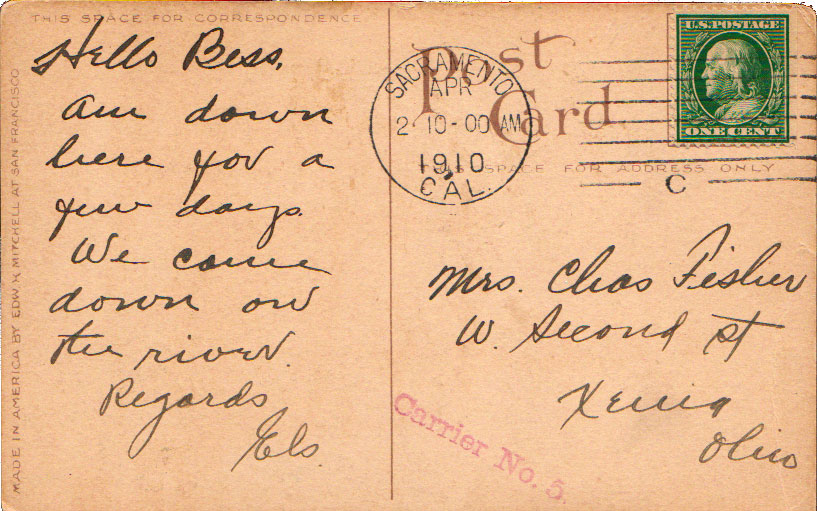 THIS SPACE FOR CORRESPONDENCE
Hello Bess,
Am down
here for a
few days.
We came
down on
the river.
Regards
Els.
MADE IN AMERICA BY EDW. H. MITCHELL AT SAN FRANCISCO
Post
Card
THIS SPACE FOR ADDRESS ONLY
SACRAMENTO
APR
2-10-00 AM
1910
CAL.
C
U.S. POSTAGE
ONE CENT
Mrs. Chas Fisher
W. Second st
Xenia
Ohio
Carrier No. 5.